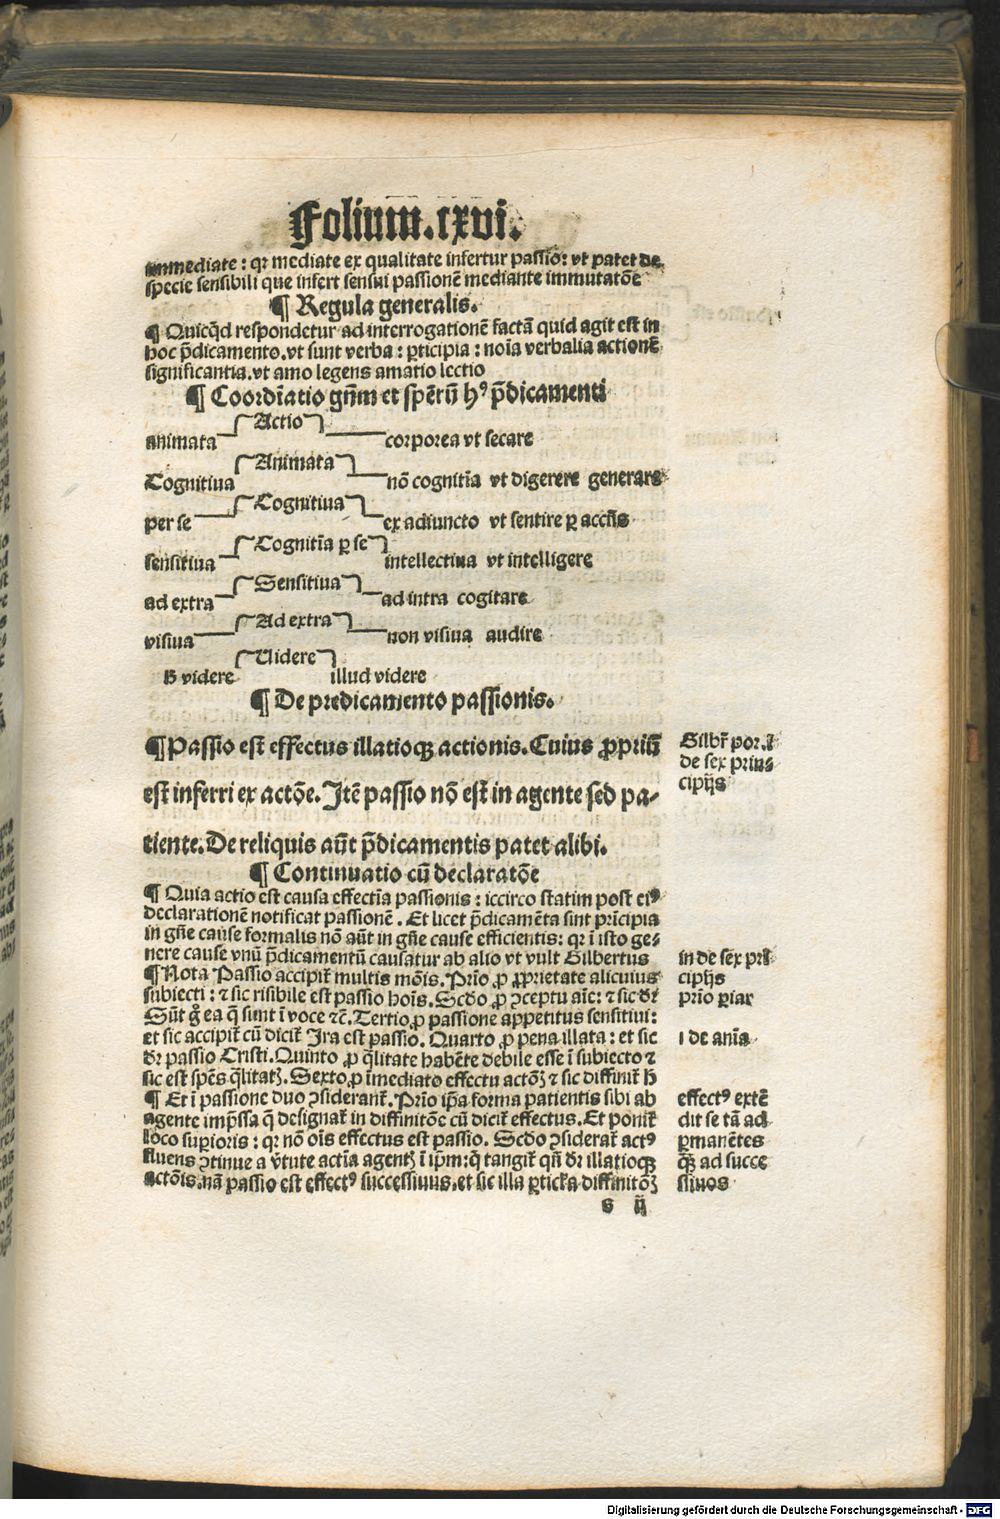 Folium.cxvi.
immediate: qꝛ mediate ex qualitate infertur passio: vt patet de
specie sensibili que infert sensui passionē mediante immutatōe
¶ Regula generalis.
¶ Quicq̄d respondetur ad interrogationē factā quid agit est in
hoc p̄dicamento.vt sunt verba: ꝑticipia: noīa verbalia actionē
significantia.vt amo legens amatio lectio
¶ Coordīatio gn̄m et spērū hꝰ p̄dicamenti
Actio
animata corporea vt secare
Animata
Cognitiua nō cognitīa vt digerere generare
Cognitiua
per se ex adiuncto vt sentire ꝑ accn̄s
Cognitīa ꝑ se
sensitiua intellectiua vt intelligere
Sensitiua
ad extra ad intra cogitare
Ad extra
visiua non visiua audire
Videre
ħ videre illud videre
¶ De predicamento passionis.
¶ Passio est effectus illatioqꝫ actionis. Cuius ꝓpriū
est inferri ex actōe. Itē passio nō est in agente sed pa-
tiente. De reliquis aūt p̄dicamentis patet alibi.
Gilbr̄ por. ī
de sex prin-
cipijs
¶ Continuatio cū declaratōe
¶ Quia actio est causa effectīa passionis: iccirco statim post eiꝰ
declarationē notificat passionē. Et licet p̄dicamēta sint prīcipia
in gn̄e cause formalis nō aūt in gn̄e cause efficientis: qꝛ ī isto ge-
nere cause vnū p̄dicamentū causatur ab alio vt vult Gilbertus
¶ Nota Passio accipit̄ multis mōis. Prīo ꝓ ꝓprietate alicuius
subiecti: ⁊ sic risibile est passio hoīs. Scd̄o ꝓ ꝯceptu aīe: ⁊ sic dr̄
Sūt g̊ ea q̄ sunt ī voce ⁊c̄. Tertio ꝓ passione appetitus sensitiui:
et sic accipit̄ cū dicit̄ Ira est passio. Quarto ꝓ pena illata: et sic
dr̄ passio Cristi. Quinto ꝓ q̄litate habēte debile esse ī subiecto ⁊
sic est spēs q̄litatꝭ. Sexto ꝓ īmediato effectu actōꝭ ⁊ sic diffinit̄ ħ
¶ Et ī passione duo ꝯsiderant̄. Prīo ip̄a forma patientis sibi ab
agente imp̄ssa q̄ designat̄ in diffinitōe cū dicit̄ effectus. Et ponit̄
loco suꝑioris: qꝛ nō oīs effectus est passio. Scd̄o ꝯsiderat̄ actꝰ
fluens ꝯtinue a v̄tute actīa agentꝭ ī ip̄m: q̄ tangit̄ qn̄ dr̄ illatioqꝫ
actōis. nā passio est effectꝰ successiuus. et sic illa ꝑticl̄a diffinitōꝭ
in de sex pri-
cipijs
prīo ꝑiar
ī de anīa
effectꝰ extē
dit se tā ad
ꝑmanētes
q̄ꝫ ad succe
ssiuos
s ij
Digitalisierung gefördert durch die Deutsche Forschungsgemeinschaft - DFG